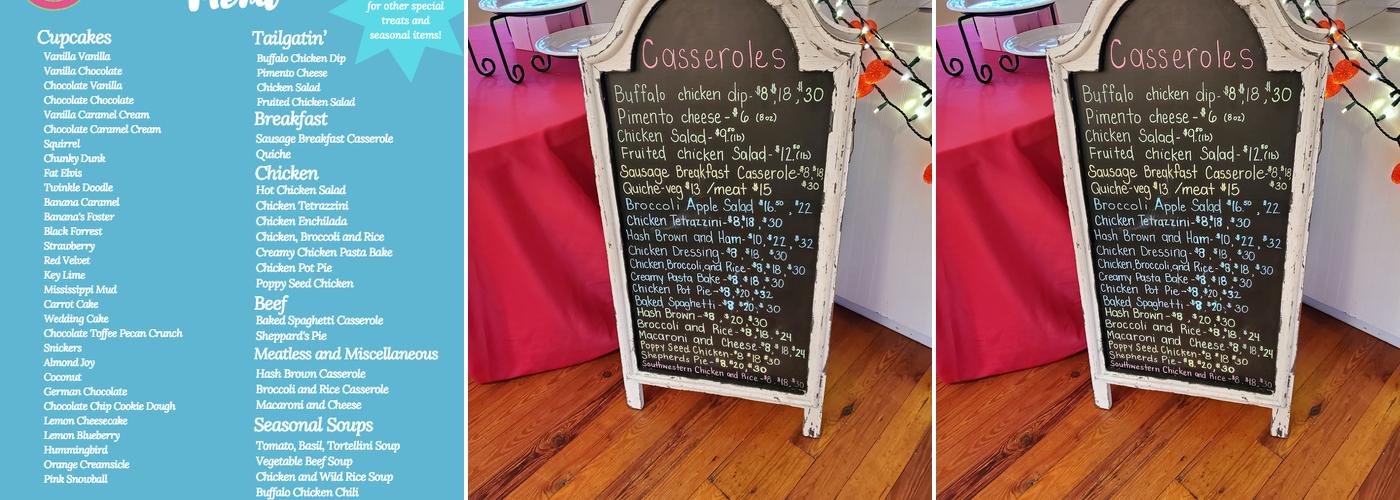 Menu
for other special
treats and
seasonal items!
Cupcakes
Vanilla Vanilla
Vanilla Chocolate
Chocolate Vanilla
Chocolate Chocolate
Vanilla Caramel Cream
Chocolate Caramel Cream
Squirrel
Chunky Dunk
Fat Elvis
Twinkle Doodle
Banana Caramel
Banana's Foster
Black Forrest
Strawberry
Red Velvet
Key Lime
Mississippi Mud
Carrot Cake
Wedding Cake
Chocolate Toffee Pecan Crunch
Snickers
Almond Joy
Coconut
German Chocolate
Chocolate Chip Cookie Dough
Lemon Cheesecake
Lemon Blueberry
Hummingbird
Orange Creamsicle
Pink Snowball
Tailgatin'
Buffalo Chicken Dip
Pimento Cheese
Chicken Salad
Fruited Chicken Salad
Breakfast
Sausage Breakfast Casserole
Quiche
Chicken
Hot Chicken Salad
Chicken Tetrazzini
Chicken Enchilada
Chicken, Broccoli and Rice
Creamy Chicken Pasta Bake
Chicken Pot Pie
Poppy Seed Chicken
Beef
Baked Spaghetti Casserole
Sheppard's Pie
Meatless and Miscellaneous
Hash Brown Casserole
Broccoli and Rice Casserole
Macaroni and Cheese
Seasonal Soups
Tomato, Basil, Tortellini Soup
Vegetable Beef Soup
Chicken and Wild Rice Soup
Buffalo Chicken Chili
Casseroles
Buffalo chicken dip-$8,$18,$30
Pimento cheese-$6 (8oz)
Chicken Salad-$9.50(lb)
Fruited chicken Salad-$12.50(lb)
Sausage Breakfast Casserole-$8,$18
$30
Quiche-veg $13 /meat $15
Broccoli Apple Salad $16.50, $22
Chicken Tetrazzini-$8,$18, $30
Hash Brown and Ham-$10, $22, $32
Chicken Dressing-$8, $18, $30
Chicken,Broccoli,and Rice-$8,$18,$30
Creamy Pasta Bake-$8,$18,$30
Chicken Pot Pie-$8,$20,$32
Baked Spaghetti-$8,$20,$30
Hash Brown-$8,$20,$30
Broccoli and Rice-$8,$18,$24
Macaroni and Cheese-$8,$18,$24
Poppy Seed Chicken-$8 $18 $30
Shepherds Pie-$8,$20,$30
Southwestern Chicken and Rice-$8,$18,$30
Casseroles
Buffalo chicken dip-$8,$18,$30
Pimento cheese-$6 (8oz)
Chicken Salad-$9.50(lb)
Fruited chicken Salad-$12.50(lb)
Sausage Breakfast Casserole-$8,$18
$30
Quiche-veg $13 /meat $15
Broccoli Apple Salad $16.50, $22
Chicken Tetrazzini-$8,$18, $30
Hash Brown and Ham-$10, $22, $32
Chicken Dressing-$8, $18, $30
Chicken,Broccoli,and Rice-$8,$18,$30
Creamy Pasta Bake-$8,$18,$30
Chicken Pot Pie-$8,$20,$32
Baked Spaghetti-$8,$20,$30
Hash Brown-$8,$20,$30
Broccoli and Rice-$8,$18,$24
Macaroni and Cheese-$8,$18,$24
Poppy Seed Chicken-$8 $18 $30
Shepherds Pie-$8,$20,$30
Southwestern Chicken and Rice-$8,$18,$30